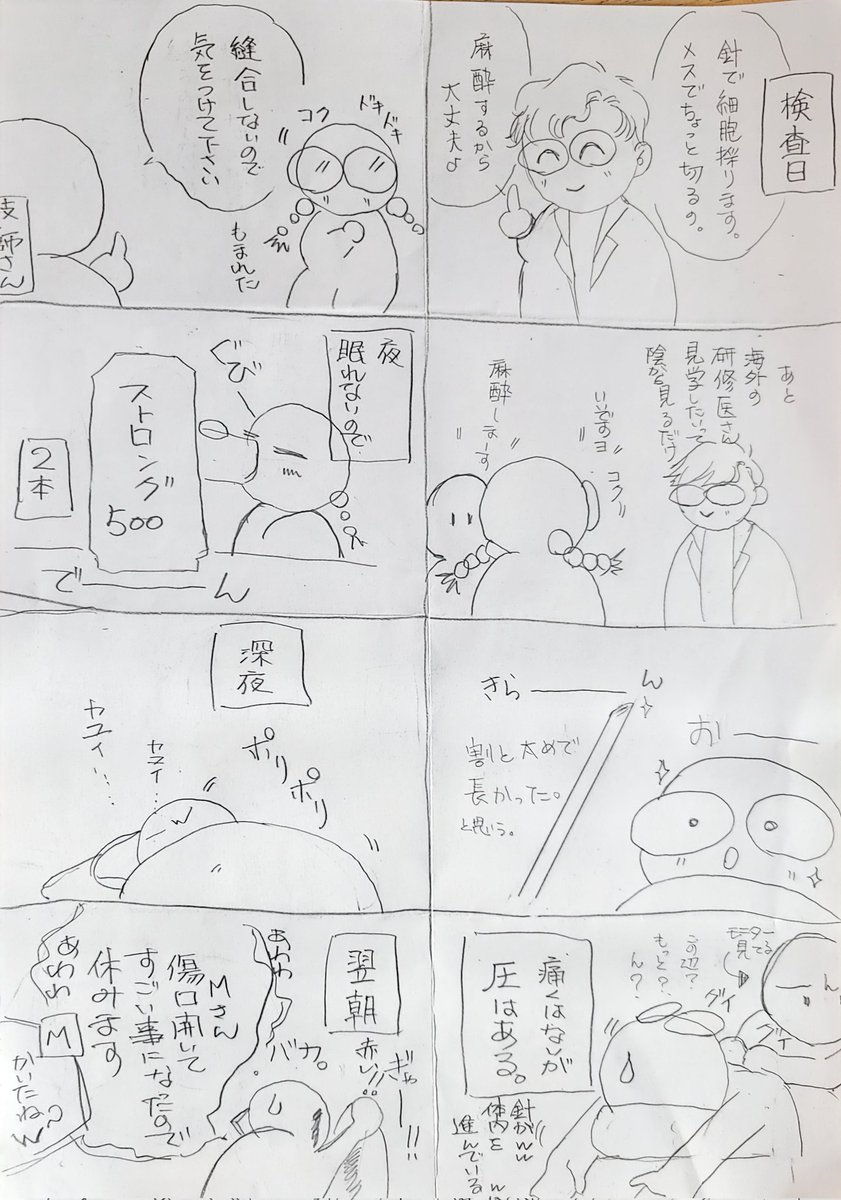 検査日
針で細胞採ります。
メスでちょっと切るの。
麻酔するから
大丈夫♪
あと
海外の
研修医さん
見学したいって
陰から見るだけ
いいですヨ
コク
麻酔しまーす
お———
きら———ん
割と太めで
長かった。
と思う。
モニター
見てる
この辺?
もっと?
ん?
グイ
グイ
ん
痛くはないが
圧はある。
針がww
体内を
進んでいる
ドキ
ドキ
コク
縫合しないので
気をつけて下さい
もまれた
技師さん
夜
眠れないので
ぐび
ストロング
500
2本
で———ん
深夜
ポリ
ポリ
カユイ…
カユイ…
翌朝
赤い!!
ぎゃー!!!
バカ。
あわわ
Mさん
傷口開いて
すごい事になったので
休みます
あわわ
M
かいたねん